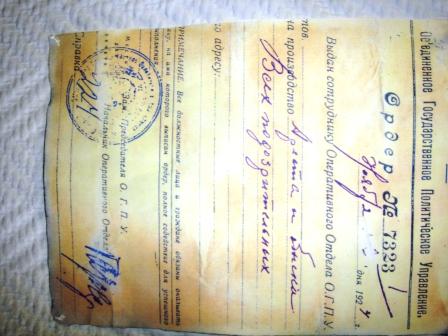 Объединенное Государственное Политическое Управление.
Ордер № 7323
дня 192
Выдан сотруднику Оперативного Отдела О.Г.П.У.
на производство Ареста и
Всех подозрительных
адресу:
ПРИМЕЧАНИЕ: Все должностные лица и граждане обязаны оказывать
на имя которого выписан ордер, полное содействие для успешного
Зам. Председателя О.Г.П.У.
Начальник Оперативного Отдела
Справка